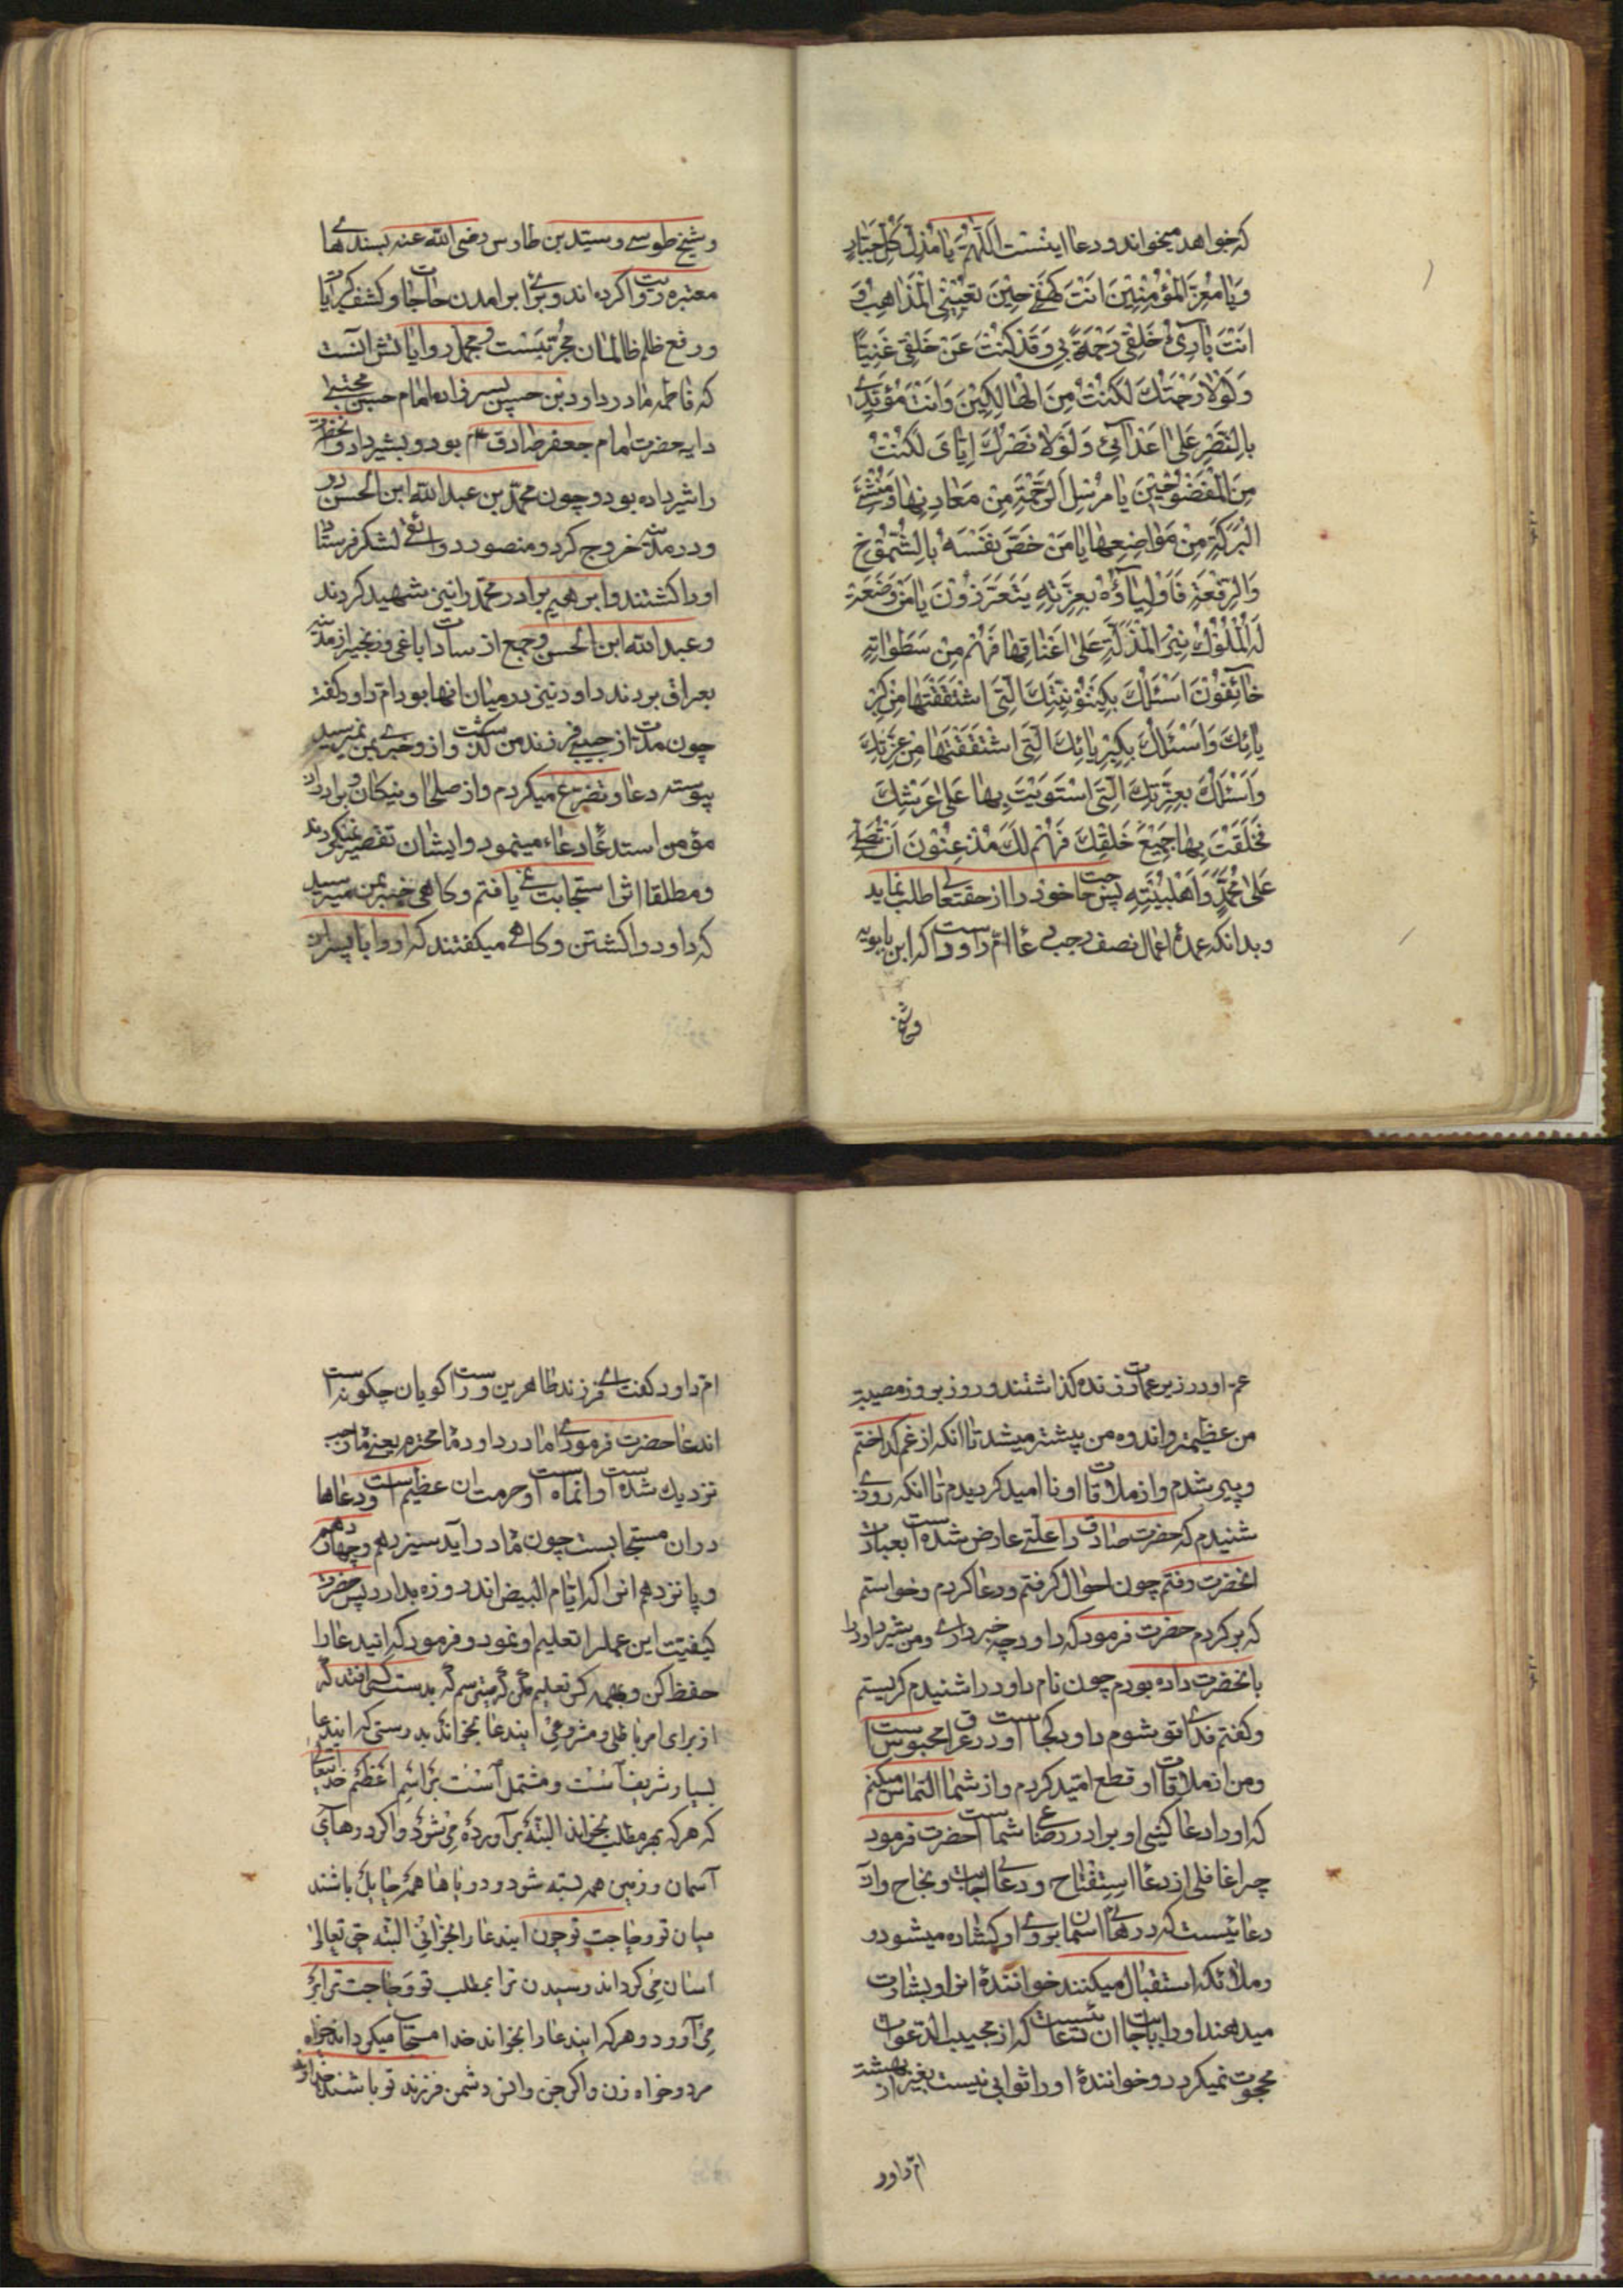 که خواهد میخواند و دعا اینست اَللّهُمَّ یا مُذِلَّ کُلِّ جَبّارٍ
وَیا مُعِزَّ الْمُؤْمِنینَ اَنْتَ کَهْفی حینَ تُعْیینِی الْمَذاهِبُ وَ
اَنْتَ بارِئُ خَلْقی رَحْمَةً بی وَقَدْ کُنْتَ عَنْ خَلْقی غَنِیّاً
وَلَوْلا رَحْمَتُکَ لَکُنْتُ مِنَ الْهالِکینَ وَاَنْتَ مُؤَیِّدی
بِالنَّصْرِ عَلی اَعْدائی وَلَوْلا نَصْرُکَ اِیّایَ لَکُنْتُ
مِنَ الْمَفْضُوحینَ یا مُرْسِلَ الرَّحْمَةِ مِنْ مَعادِنِها وَمُنْشِئَ
الْبَرَکَةِ مِنْ مَواضِعِها یا مَنْ خَصَّ نَفْسَهُ بِالشُّمُوخِ
وَالرِّفْعَةِ فَاَوْلِیاؤُهُ بِعِزَّتِهِ یَتَعَزَّزُونَ یا مَنْ وَضَعَتْ
لَهُ الْمُلُوکُ نیرَ الْمَذَلَّةِ عَلی اَعْناقِها فَهُمْ مِنْ سَطَواتِهِ
خائِفُونَ اَسْئَلُکَ بِکَیْنُونِیَّتِکَ الَّتی اشْتَقَقْتَها مِنْ کِبْرِ
یائِکَ وَاَسْئَلُکَ بِکِبْرِیائِکَ الَّتی اشْتَقَقْتَها مِنْ عِزَّتِکَ
وَاَسْئَلُکَ بِعِزَّتِکَ الَّتی اسْتَوَیْتَ بِها عَلی عَرْشِکَ
فَخَلَقْتَ بِها جَمیعَ خَلْقِکَ فَهُمْ لَکَ مُذْعِنُونَ اَنْ تُصَلِّیَ
عَلی مُحَمَّدٍ وَاَهْلِبَیْتِهِ پس حاجت خود را از حقتعالی طلب نماید
و بدانکه عمدهٔ اعمال نصف رجب دعای امّ داود است که ابن بابویه
و شیخ
و شیخ طوسی و سیّد بن طاوس رضی الله عنه بسندهای
معتبره روایت کرده اند و برای برامدن حاجات و کشف کربات
و رفع ظلم ظالمان مجرّبست و مجمل روایاتش آنست
که فاطمه مادر داود بن حسین پسرزاده امام حسن مجتبی
دایه حضرت امام جعفر صادق ع بود و بشیر داود انحضرت
را شیر داده بود و چون محمّد بن عبدالله ابن الحسن در
و در مدینه خروج کرد و منصور دوانقی لشکر فرستاد
او را کشتند و ابرهیم برادر محمّد را نیز شهید کردند
و عبدالله ابن الحسن و جمع از سادات با غل و زنجیر از مدینه
بعراق بردند داود نیز در میان انها بود امّ داود گفت
چون مدّت از حبس فرزند من گذشت و از و خبری بمن نمیرسید
پیوسته دعا و تضرّع میکردم و از صلحا و نیکان و برادران
مؤمن استدعای دعاء مینمودم و ایشان تقصیر نمیکردند
و مطلقا اثر استجابت نمی یافتم و کاهی خبر بمن میرسید
که داود را کشتند و کاهی میکفتند که او را با پسران
عم او در زیر عمارت زنده کذاشتند و روز بروز مصیبت
من عظیمتر و اندوه من بیشتر میشد تا انکه از غم گداختم
و پیر شدم و از ملاقات او نا امید کردیدم تا انکه روزی
شنیدم که حضرت صادق را علّتی عارض شده است بعیادت
انحضرت رفتم چون احوال کرفتم و دعا کردم و خواستم
که برکردم حضرت فرمود که داود چه خبر داری و من بشیر داود
بانحضرت داده بودم چون نام داود را شنیدم کریستم
و کفتم فدای تو شوم داود کجاست او در عراق محبوس است
و من از ملاقات او قطع امّید کردم و از شما التماس میکنم
که او را دعا کنید او برادر رضاعی شماست حضرت فرمود
چرا غافلی از دعای استفتاح و دعای اجابت و نجاح و ان
دعائیست که درهای اسمان بروی او کشاده میشود
و ملائکه استقبال میکنند خوانندهٔ انرا و بشارت
میدهند او را باجابت ان دعائیست که از مجیب الدّعوات
محجوب نمیکردد و خوانندهٔ او را ثوابی نیست بغیر از بهشت
امّ داود
امّ داود کفت ای فرزند طاهرین و راستکویان چکونه است
اندعا حضرت فرمود ای مادر داود ماه محترم یعنی ماه رجب
نزدیک شده است و انماه است و حرمت ان عظیم است و دعاها
در ان مستجابست چون ماه در آید سیزدهم و چهاردهم
و پانزدهم انرا که ایّام البیض اند روزه بدار پس حضرت
کیفیّت این عمل را تعلیم او نمود و فرمود که ایندعا را
حفظ کن و بهمه کس تعلیم مکن که میترسم که بدست کسی افتد که
از برای امر باطل و مشروعی ایندعا بخواند بدرستی که ایندعا
بسیار شریف است و مشتمل است بر اسم اعظم خدایتعالی
که هر که بهر مطلب بخواند البتّه بر آورده می شود و اکر درهای
آسمان و زمین همه بسته شود و دریاها همه حایل باشند
میان تو و حاجت تو چون ایندعا را بخوانی البتّه حق تعالی
اسان می کرداند رسیدن ترا بمطلب تو و حاجت ترا بر
می آورد و هر که ایندعا را بخواند خدا مستجاب میکرداند خواه
مرد و خواه زن و اکر جن و انس دشمن فرزند تو باشند